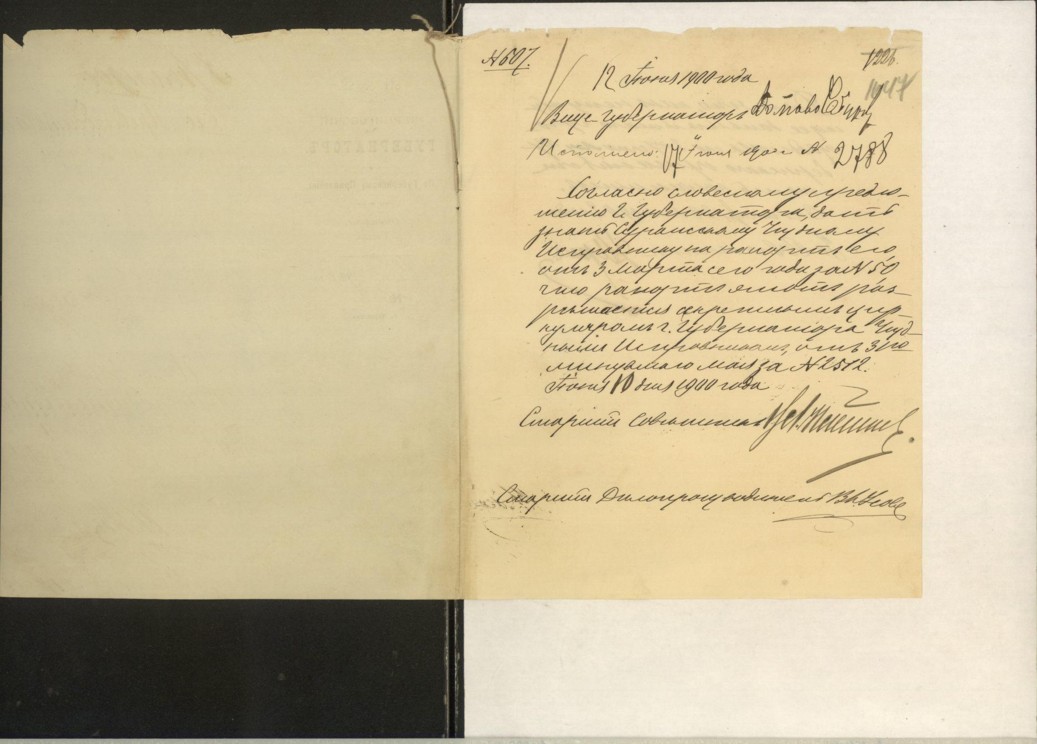 N 607.
1447
12 Іюня 1900 года
Вице Губернаторъ
Исполнено 17 Іюня 1900 г. N 2788
Согласно словесному предло-
женію Г. Губернатора, дать
знать Уѣздному
Исправнику на рапортъ его
отъ 3 Марта сего года за N 50
что рапортъ
секретнымъ цир-
куляромъ г. Губернатора Уѣзд-
нымъ Исправникамъ, отъ 31 го
минувшаго мая за N 2512.
Іюня 10 дня 1900 года
Старшій Совѣтникъ
Старшій Дѣлопроизводитель